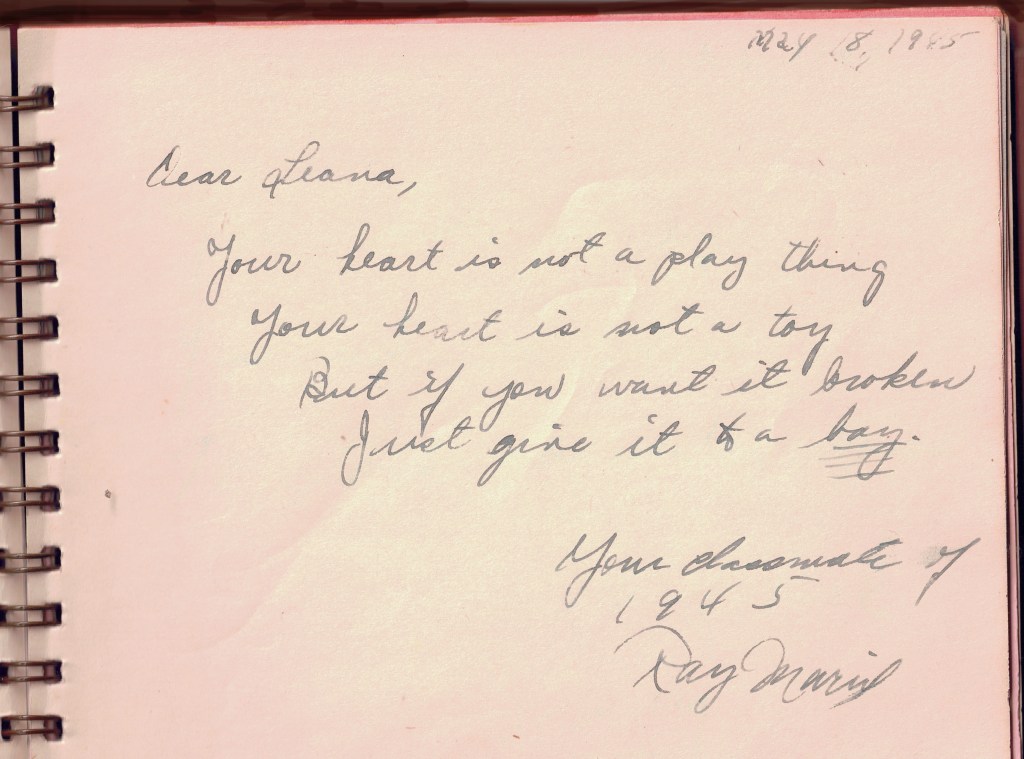 May 18, 1945
Dear Leana,
Your heart is not a play thing
Your heart is not a toy
But if you want it broken
Just give it to a boy.
Your classmate of
1945
Ray